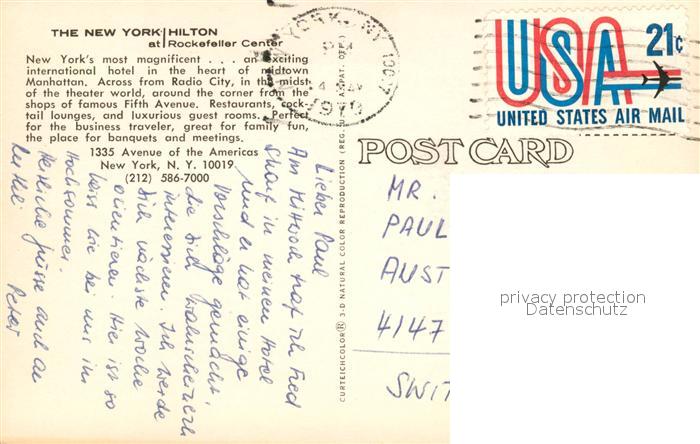 THE NEW YORK HILTON
at Rockefeller Center
New York's most magnificent . . . an exciting
international hotel in the heart of midtown
Manhattan. Across from Radio City, in the midst
of the theater world, around the corner from the
shops of famous Fifth Avenue. Restaurants, cock-
tail lounges, and luxurious guest rooms. Perfect
for the business traveler, great for family fun,
the place for banquets and meetings.
1335 Avenue of the Americas
New York, N. Y. 10019
(212) 586-7000
Lieber Paul
Am Mittwoch traf ich Fred
Scharf in meinem Hotel
und er hat einige
Vorschläge gemacht,
die Dich wahrscheinlich
interessieren. Ich werde
Dich nächste Woche
orientieren. Hier ist so
heiss wie bei uns im
Hochsommer.
Herzliche Grüsse auch an
Peter
CURTEICHCOLOR® 3-D NATURAL COLOR REPRODUCTION (REG. U.S.A. PAT. OFF.)
NEW YORK, N.Y.
1970
USA 21¢
UNITED STATES AIR MAIL
POST CARD
MR.
PAUL
AUST
4147
SWIT
privacy protection
Datenschutz